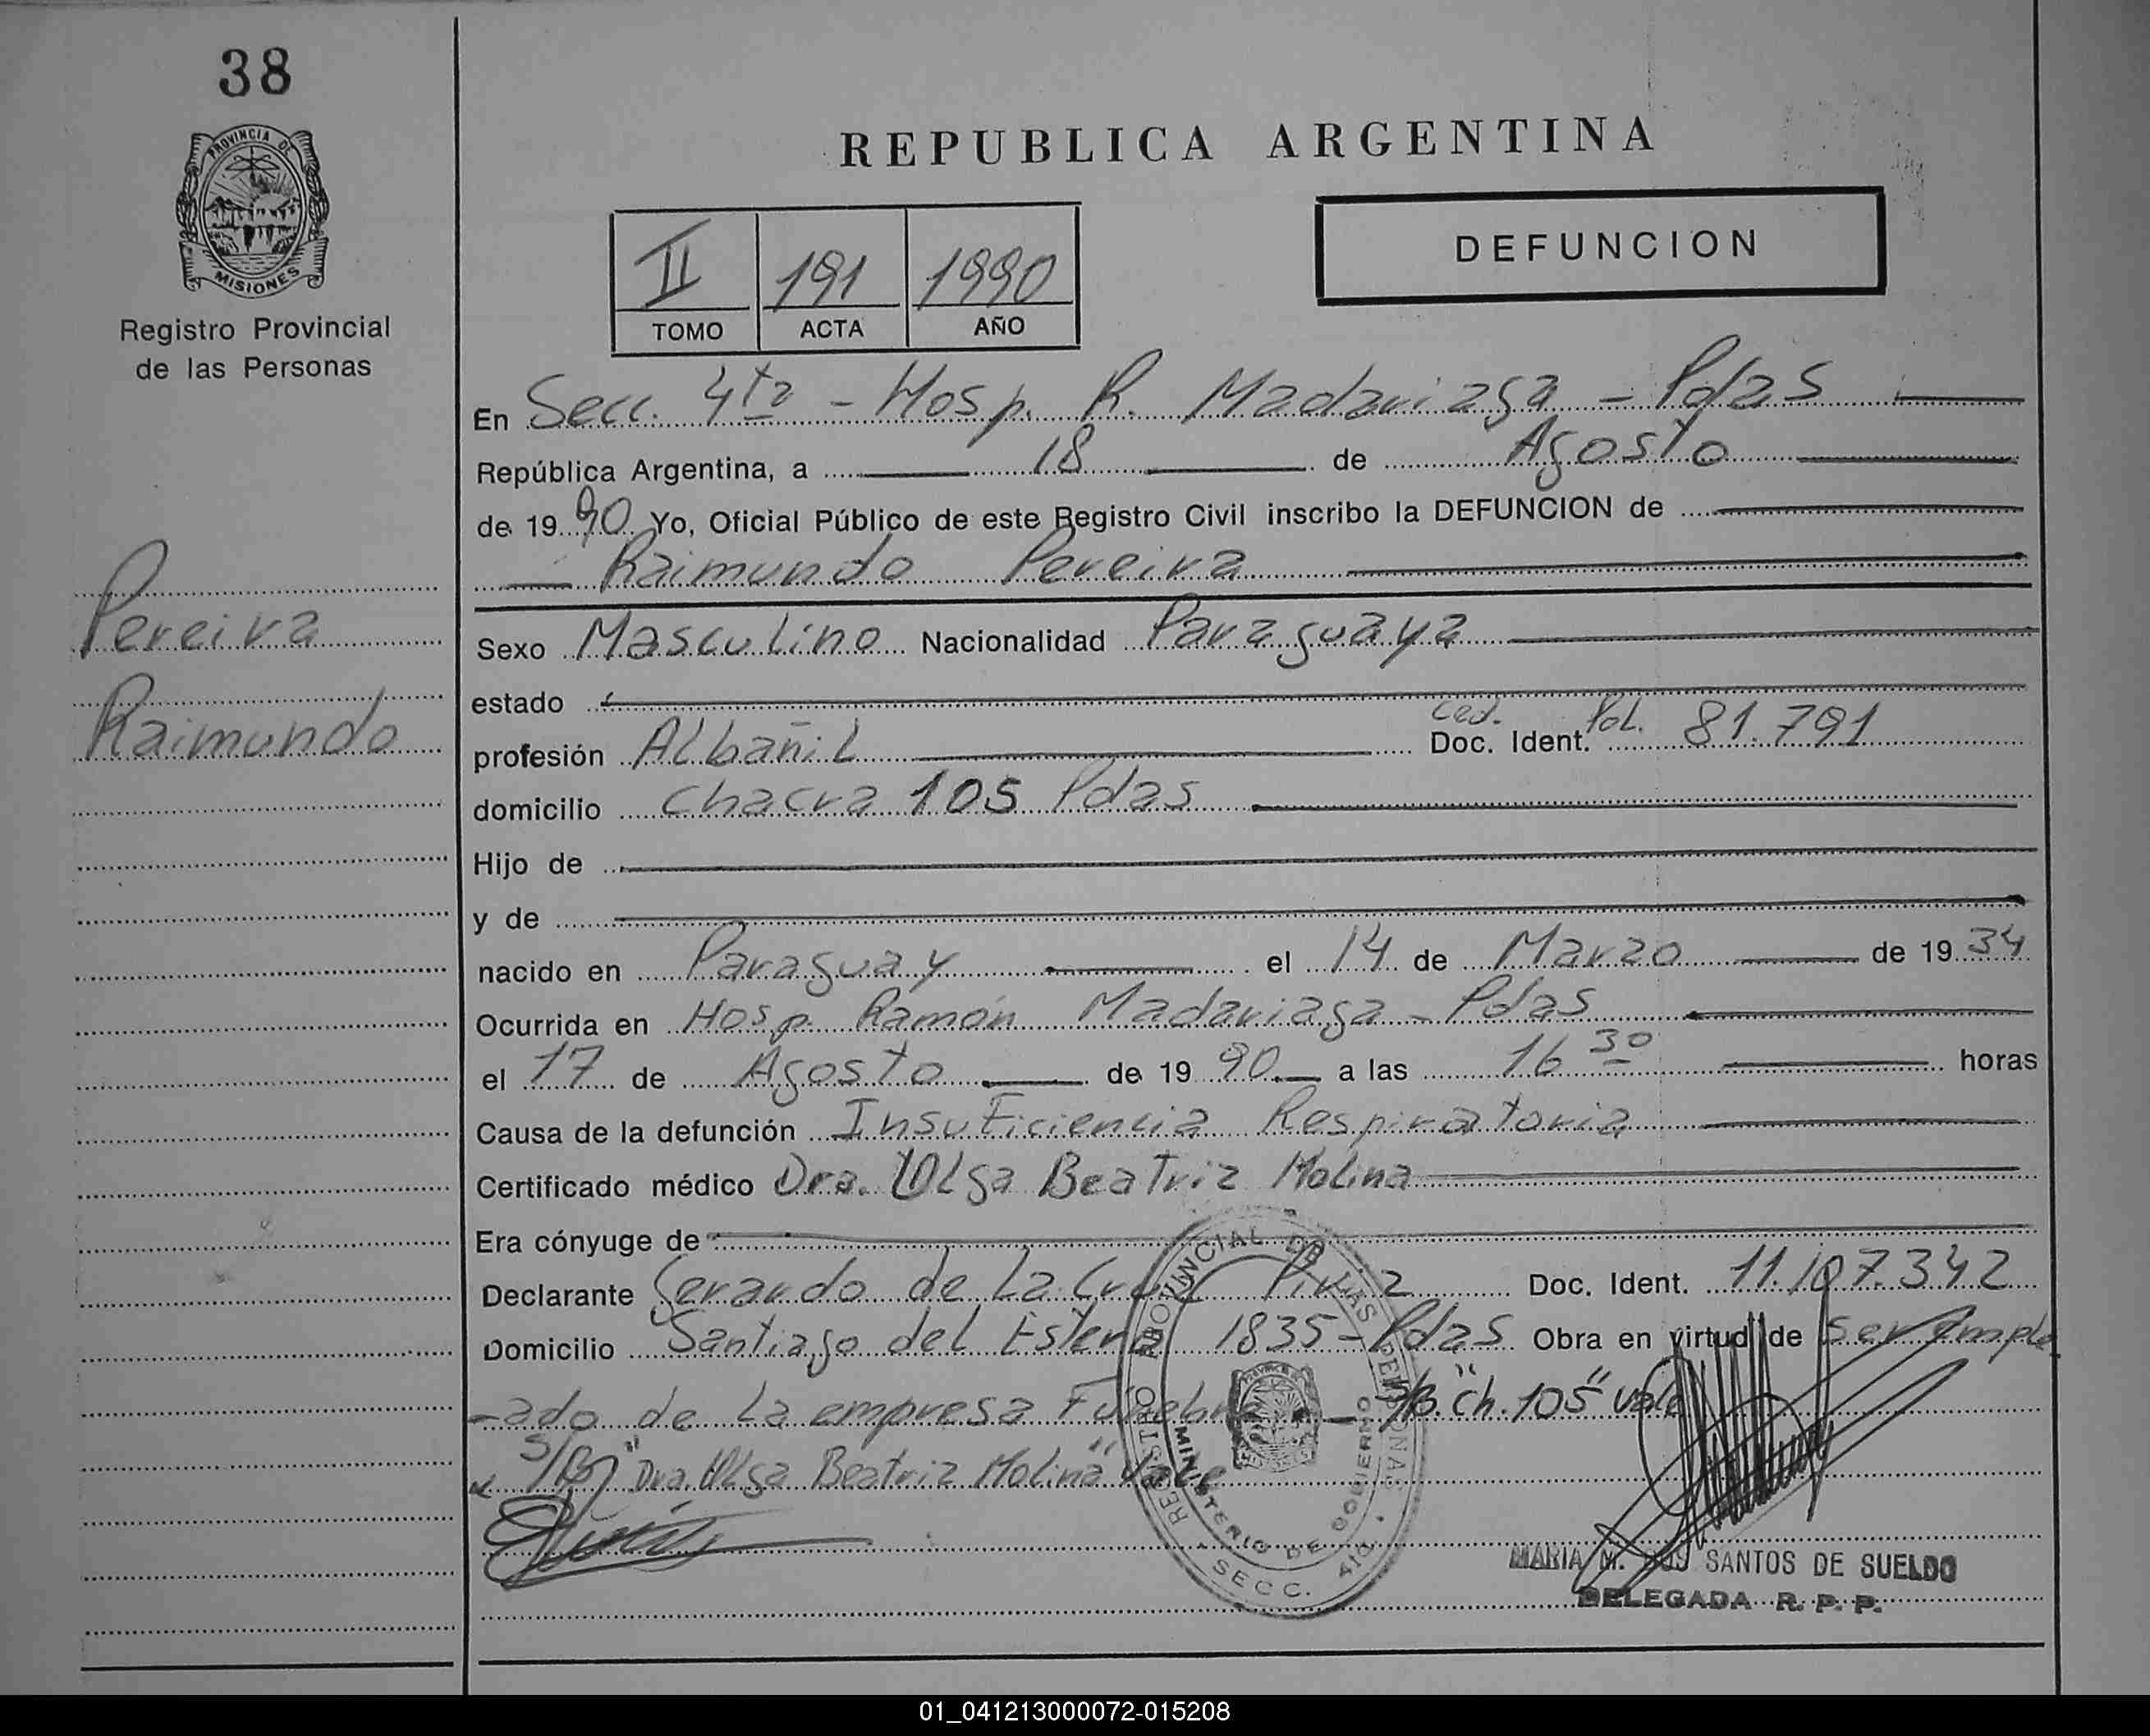 38
PROVINCIA DE
MISIONES
Registro Provincial
de las Personas
Pereira
Raimundo
REPUBLICA ARGENTINA
II 191 1990
TOMO ACTA AÑO
DEFUNCION
En Secc. 4ta - Hosp. R. Madariaga - Pdas
República Argentina, a 18 de Agosto
de 1990 Yo, Oficial Público de este Registro Civil inscribo la DEFUNCION de
Raimundo Pereira
Sexo Masculino Nacionalidad Paraguaya
estado
profesión Albañil Doc. Ident. Ced. Pol. 81.791
domicilio Chacra 105 Pdas
Hijo de
y de
nacido en Paraguay el 14 de Marzo de 1934
Ocurrida en Hosp. Ramón Madariaga - Pdas
el 17 de Agosto de 1990 a las 16 30 horas
Causa de la defunción Insuficiencia Respiratoria
Certificado médico Dra. Olga Beatriz Molina
Era cónyuge de
Declarante Gerardo de La Cruz Doc. Ident. 11.107.342
Domicilio Santiago del Estero 1835 - Pdas Obra en virtud de ser emple
-ado de La empresa Fúnebre - S/B. "Ch. 105" Vale
S/B "Dra. Olga Beatriz Molina" Vale
REGISTRO PROVINCIAL DE LAS PERSONAS
MINISTERIO DE GOBIERNO
SECC. 4ta.
MARIA M. SANTOS DE SUELDO
DELEGADA R. P. P.
01_041213000072-015208